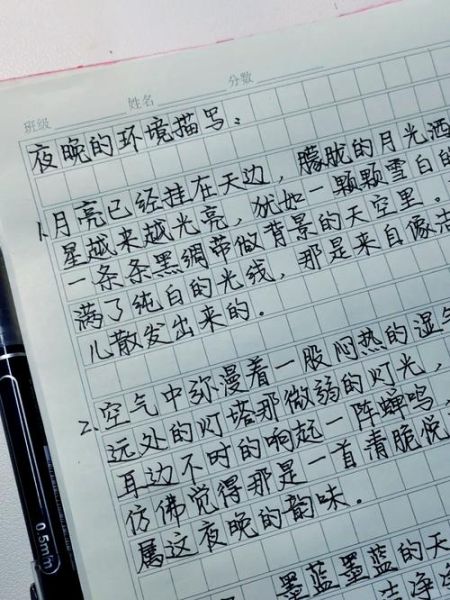 班级 姓名 分数
夜晚的环境描写：
1.月亮已经挂在天边，朦胧的月光洒
星越来越光亮，犹如一颗颗雪白的
一条条黑绸带做背景的天空里。
满了纯白的光线，那是来自像洁
儿散发出来的．
2.空气中弥漫着一股闷热的湿气
远处的灯塔那做弱的灯光，
耳边不时的响起一阵蝉鸣，
仿佛觉得那是一首清脆悦
属这夜晚的韵味．
墨蓝墨蓝的天
洁净净
0.5mm